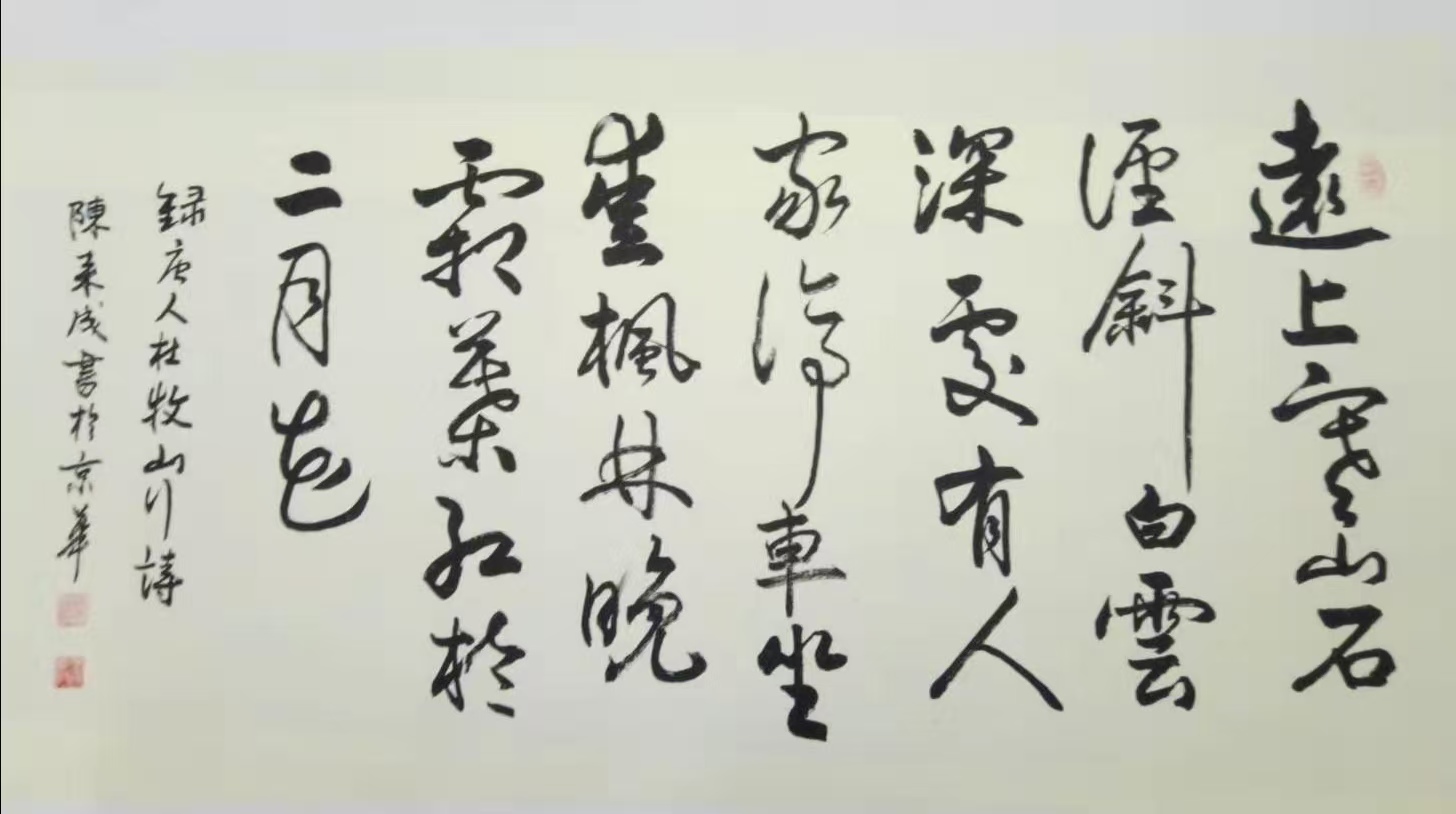 遠上寒山石
徑斜白雲
深處有人
家停車坐
愛楓林晚
霜葉紅於
二月花
録唐人杜牧山行詩
陳来成書於京華